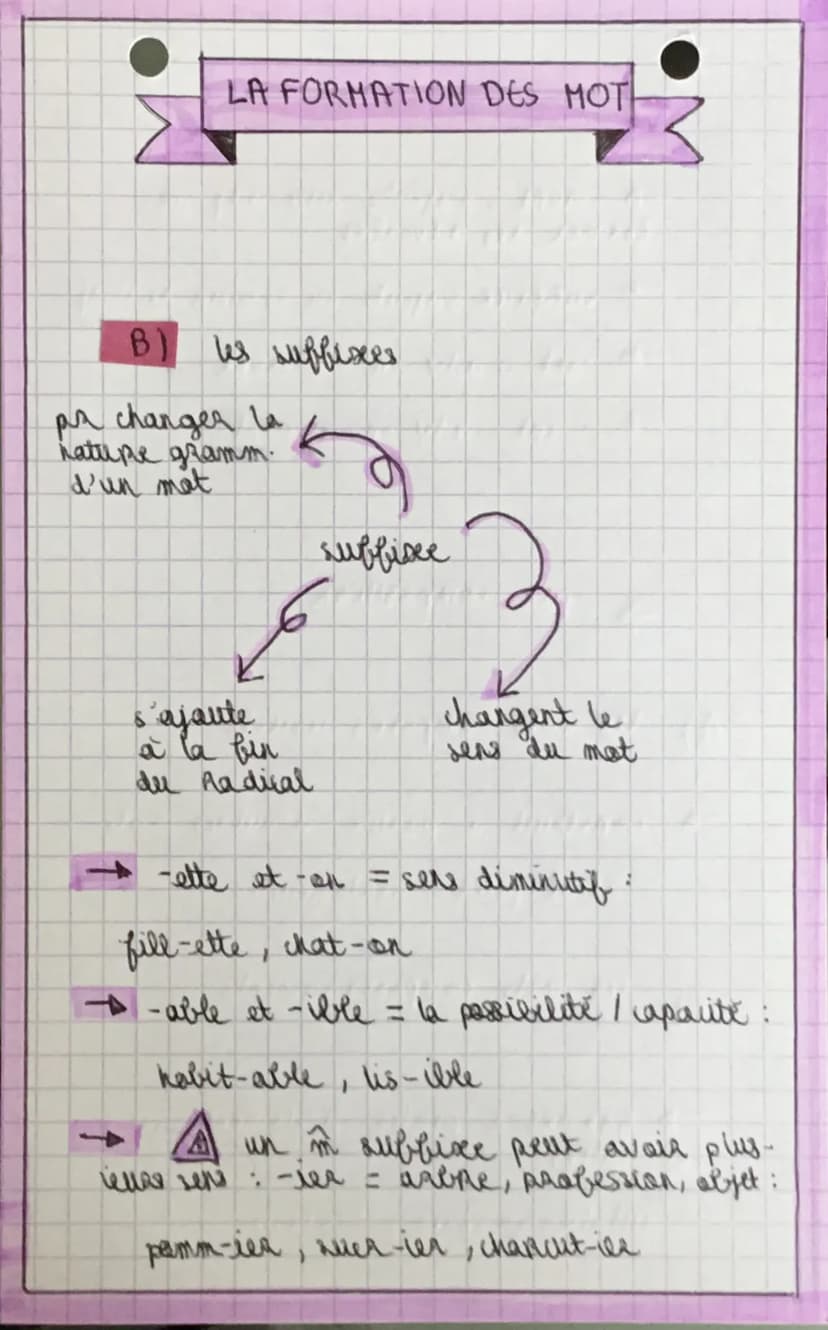 LA FORMATION DES MOT
B) les suffixes
pr changer la
nature gramm.
d'un mot
suffixe
s'ajoute
à la fin
du Radical
changent le
sens du mot
→ -ette et -on = sens diminutif :
fill-ette, chat-on
→ -able et -ible = la possibilité / capacité :
habit-able, lis-ible
→ un m̂ suffixe peut avoir plus-
ieurs sens : -ier = arbre, profession, objet :
pomm-ier, sucr-ier, charcut-ier